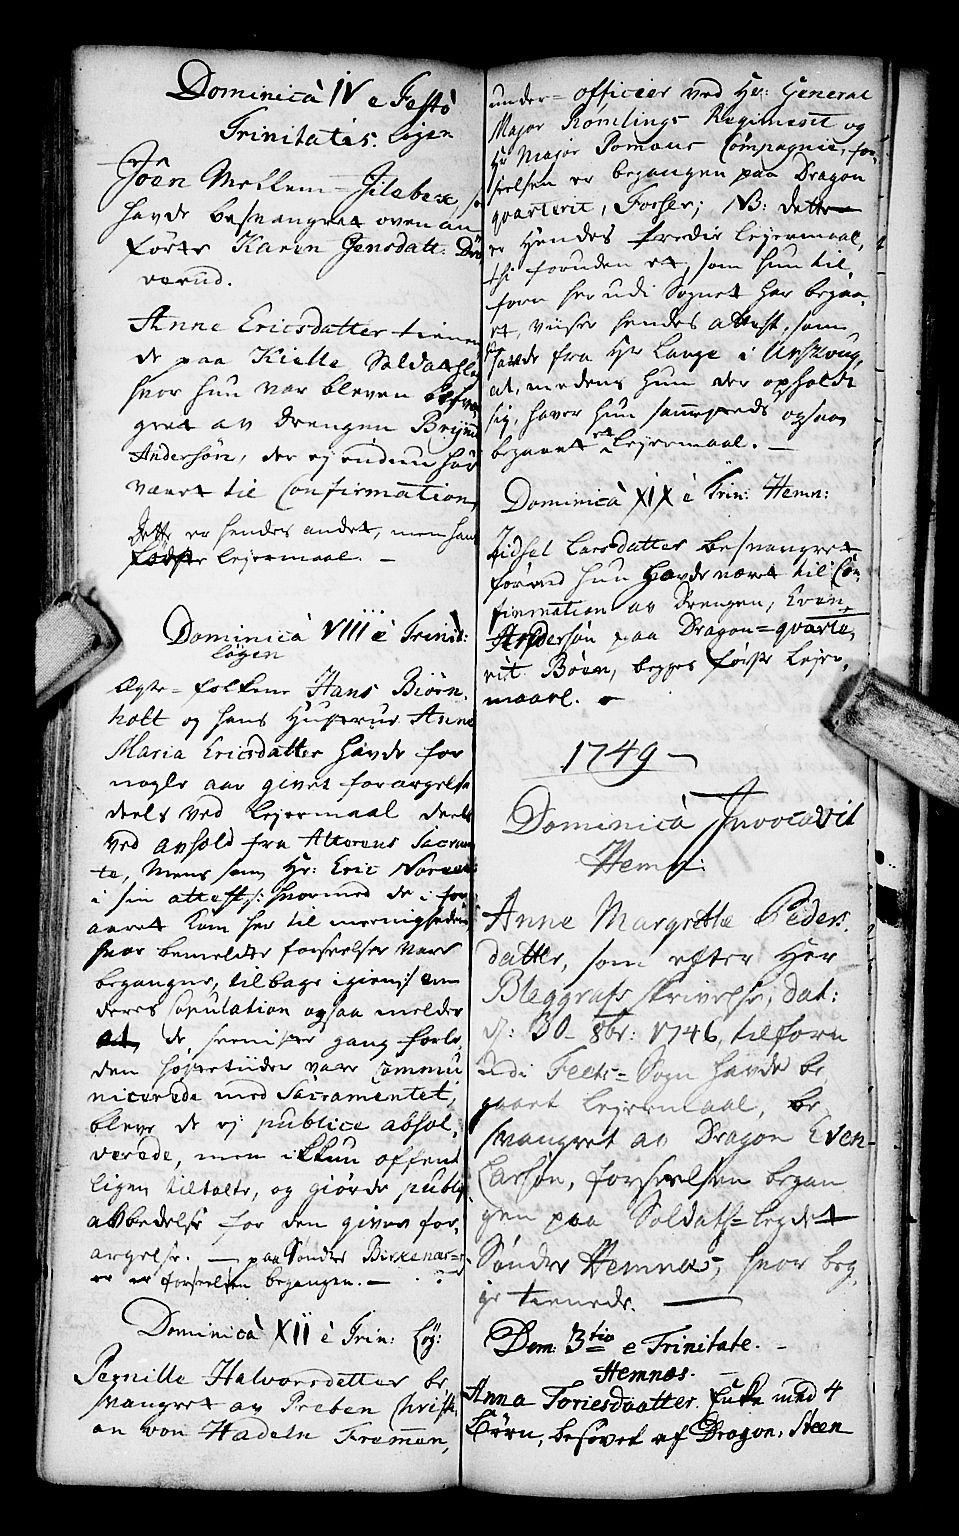 Dominicâ IV e Festô
Trinitatis. Løgen
Joen Mellem = Gilebech, so
hafde besvangret oven an
førte Karen Jensdatt: Drö
verud.
Anne Ericsdatter tienen
de paa Kielle Soldat-
hvor hun var bleven besvan
gret av Drengen Brynil
Andersøn, der ej endnu har
været til Confirmation,
Dette er hendes andet, men hans
første Lejermaal. —
Dominicâ VIII è Trinid:
Løgen
Ægte = folkene Hans Biørn
holt og hans Hustrue Anne
Maria Ericsdatter havde for
nogle aar givet forargelse
deels ved Lejermaal deels
ved avhold fra Alterens Sacramen
te, Mens som Hr: Eric
i sin attest /: hvormed de i for
aaret kom her til meenigheden
hvor bemelte forseelser vare
begangne, tilbage igien :/ om
deres Copulation ogsaa melder
at de seeniste gang forle
den høsttiider vare Commu
nicerede med Sacramentet,
bleve de ej publice absol,
verede, men ikkun offent
ligen tiltalte, og giorde publiq
avbedelse for den given for,
argelse. — paa Sönder Birkenæs
er forseelsen begangen. —
Dominicâ XII è Trin: Løg:
Pernille Halvorsdatter be
svangret av Preben Christi
an von Hadeln Fremmen,
under = officeer ved Hr: General
Major Romlings Regiment og
Hr Major Pomaus Compagnie, for
seelsen er begangen paa Dragon
qvarterit, Fosser; NB: dette
er Hendes tredie Lejermaal,
thi foruden et, som hun til
forn her udi Sognet har begaa
et, viiser hendes attest, som
havde fra Hr Lange i Urskoug,
at, medens hun der opholdt
sig, haver hun sammesteds ogsaa
begaaet et Lejermaal. —
Dominicâ XIX è Trin: Hemn:
Zidsel Larsdatter besvangret
førend hun havde været til Con
firmation av Drengen, Even
Andersøn paa Dragon = qvarte,
rit Böen, begges første Lejer,
maal.
1749 —
Dominicâ Invocavit
Hemn:
Anne Margrette Peders
datter, som efter Her
Bleggrafs skrivelse, dat:
d: 30 8br: 1746, tilforn
udi Feets = Sogn havde be
gaaet Lejermaal, be
svangret av Dragon Even
Larsøn, forseelsen began
gen paa Soldat = legdet
Sønder Hemnæs, hvor beg
ge tienede. —
Dom: 3tia e Trinitate. —
Hemnæs.
Anna Toriesdaatter Enke med 4
Børn, besovet af Dragon, Steen